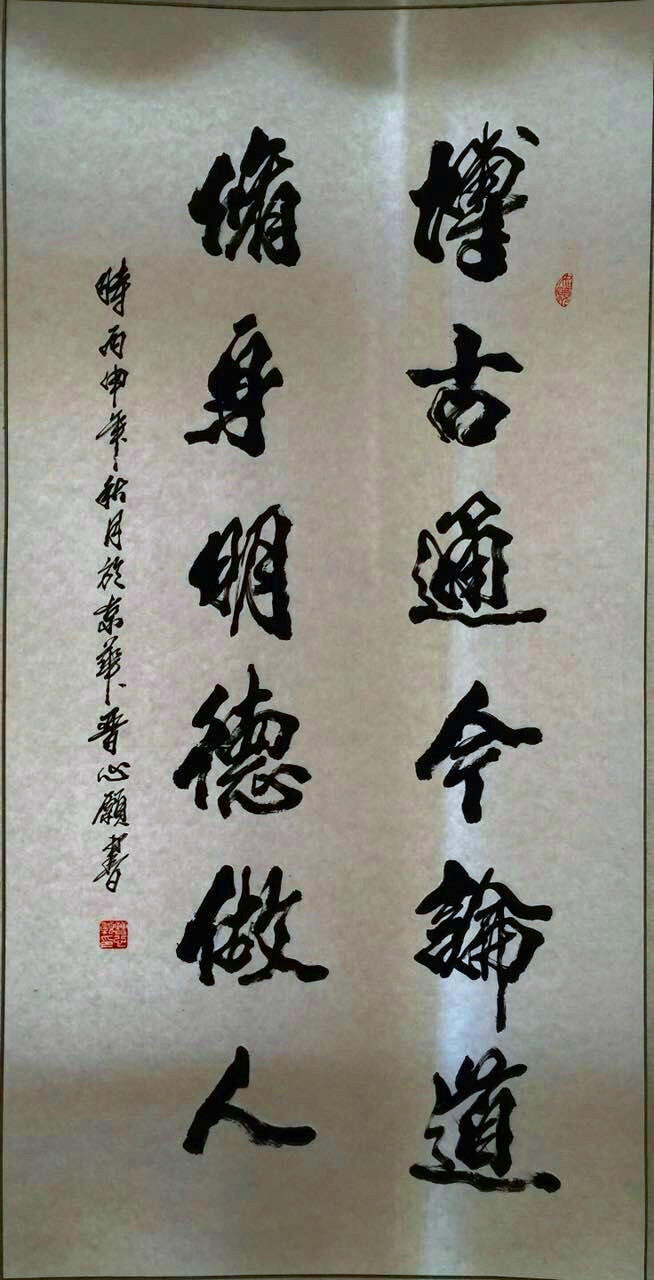 博古通今論道
脩身明德做人
時丙申年秋月於京華晋心願書